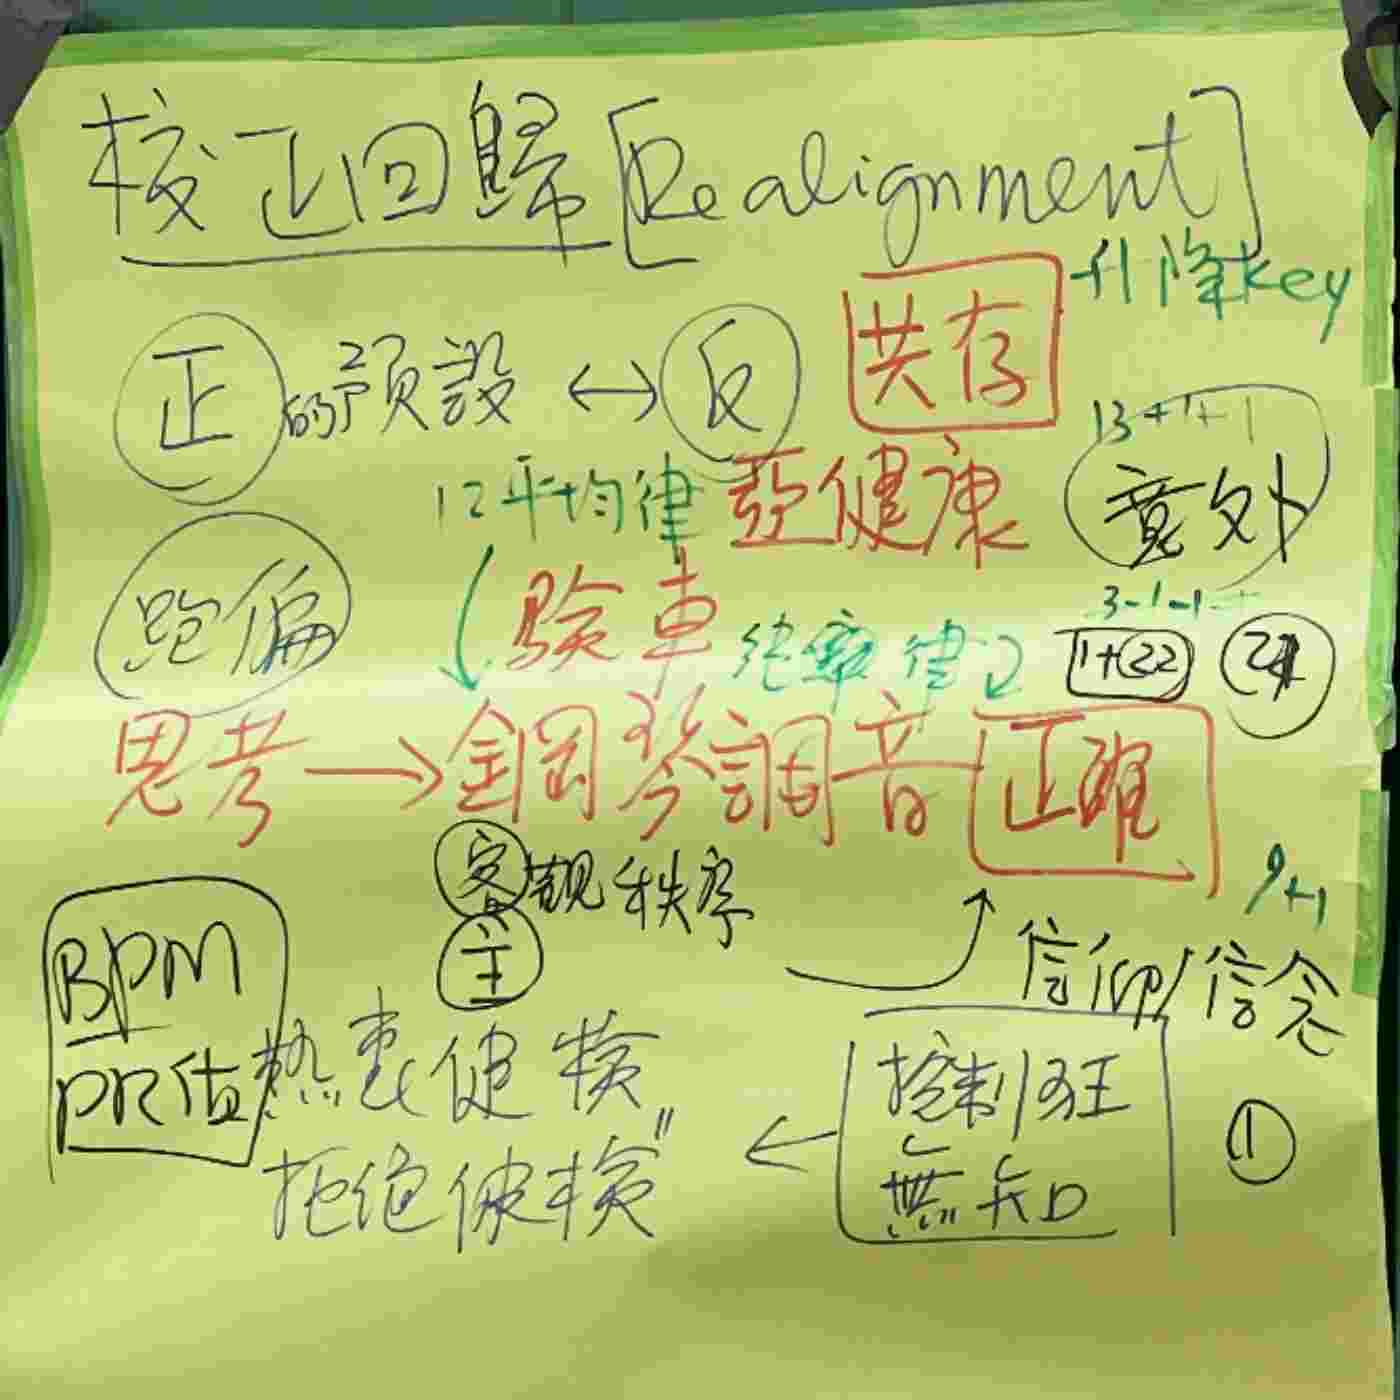 校正回歸[Realignment]
升降key
正的預設 ↔ 反 共存
13+1+1
12平均律 亞健康 意外
跑偏 驗車 純率律
3-1-1
1+22
思考→鋼琴調音 正確
客觀秩序
9+1
主
信仰/信念
BPM
PR值
熱衷健檢
控制狂
①
拒絕健檢"
無知